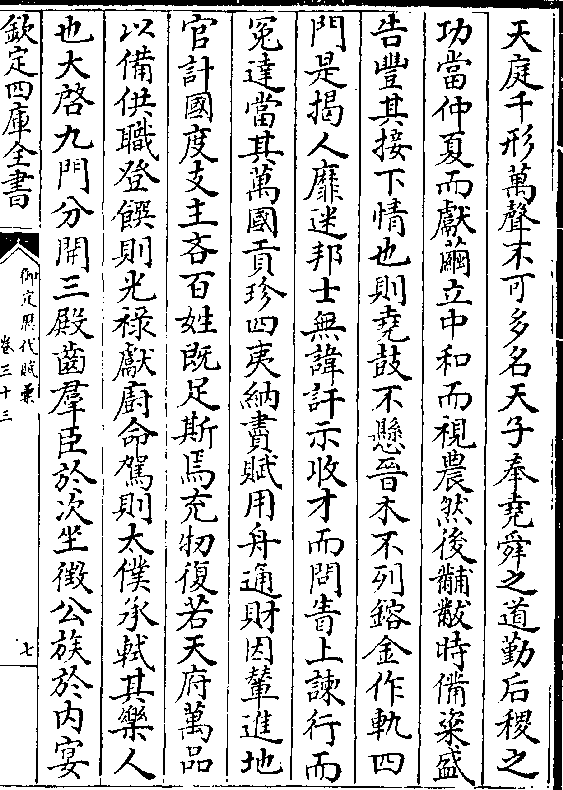 天庭千形萬聲不可多名天子奉堯舜之道勤后稷之
功當仲夏而獻繭立中和而視農然後黼黻時備粢盛
告豐其接下情也則堯鼓不懸晉木不列鎔金作軌四
門是揭人靡迷邦士無諱訐示收才而問眚上諫行而
冤達當其萬國貢珍四夷納賮賦用舟通財因輦進地
官計國度支主吝百姓既足斯焉充牣復若天府萬品
以備供職登饌則光祿獻廚命駕則太僕承軾其樂人
也大啓九門分開三殿齒羣臣於次坐徴公族於内宴
欽定四庫全書
御定歷代賦彙
卷三十三
七